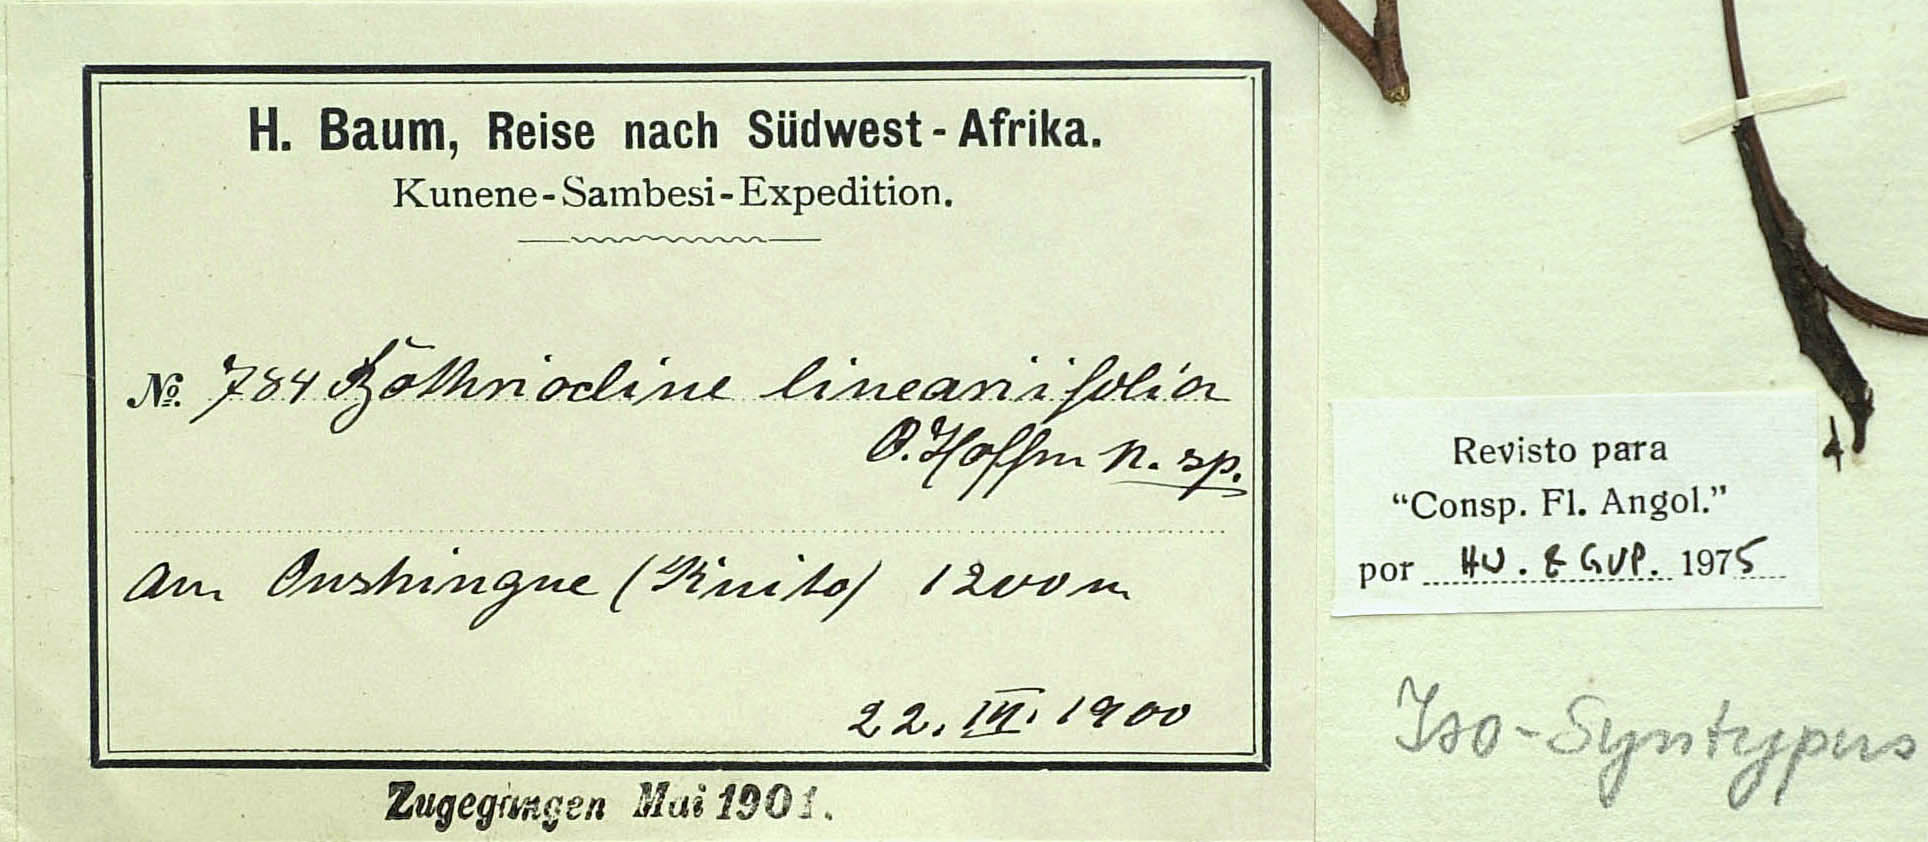 H. Baum, Reise nach Südwest-Afrika.
Kunene-Sambesi-Expedition.
No. 784 Bothriocline lineariifolia
O. Hoffm n. sp.
am (Kuito) 1200 m
22. III. 1900
Zugegangen Mai 1901.
Revisto para
"Consp. Fl. Angol."
por HU. & GUP. 1975
Iso-Syntypus